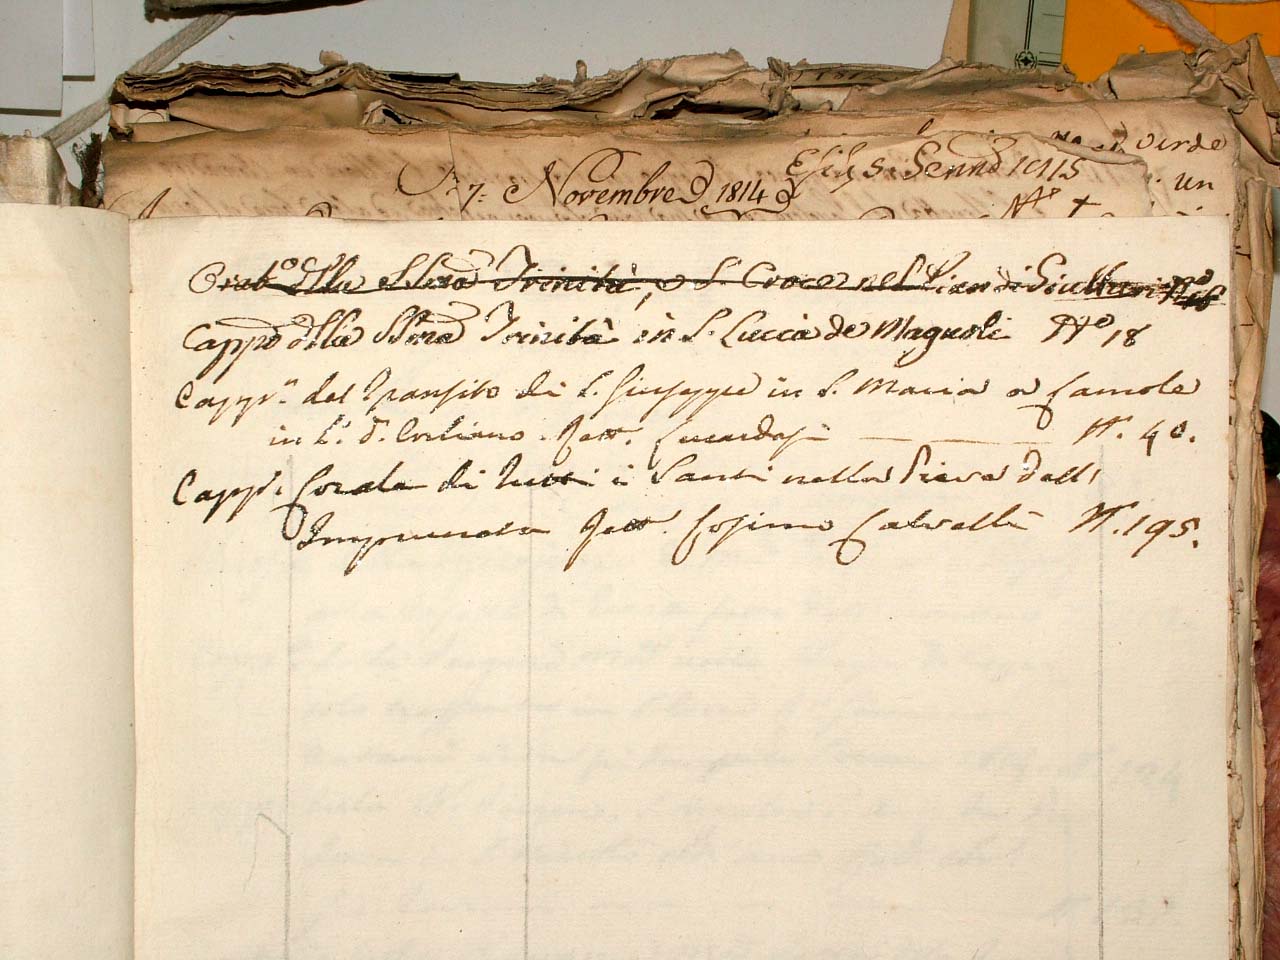 verde
Esib. 5. Genn.o 1815
7: Novembre 1814
un
N.o +
Orat.o della SS.ma Trinità, e S. Croce nel Pian di Giullari N.o
Capp.e della SS.ma Trinità in S. Lucia de Magnoli N.o 18
Capp.a del Transito di S. Giuseppe in S. Maria a Lamole
in S. D. Cerliano. Rett. Lucardesi N. 40.
Capp.a Corale di Tutti i Santi nella Pieve dell'
Impruneta Rett. Cosimo Calvelli N. 195.